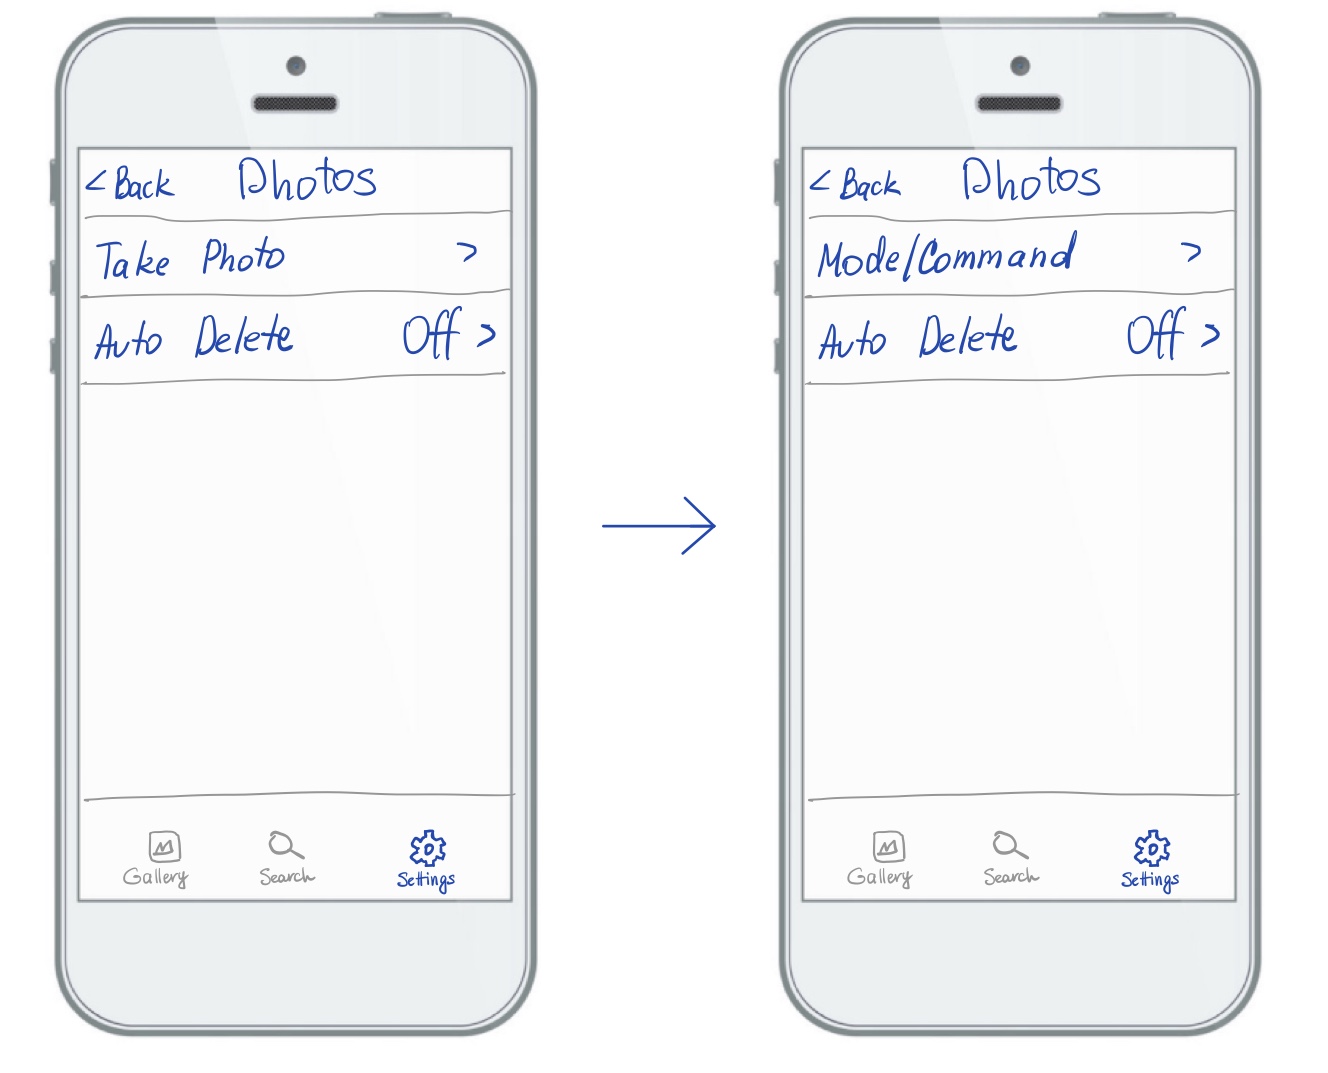 < Back Photos
Take Photo >
Auto Delete Off >
Gallery Search Settings
< Back Photos
Mode/Command >
Auto Delete Off >
Gallery Search Settings